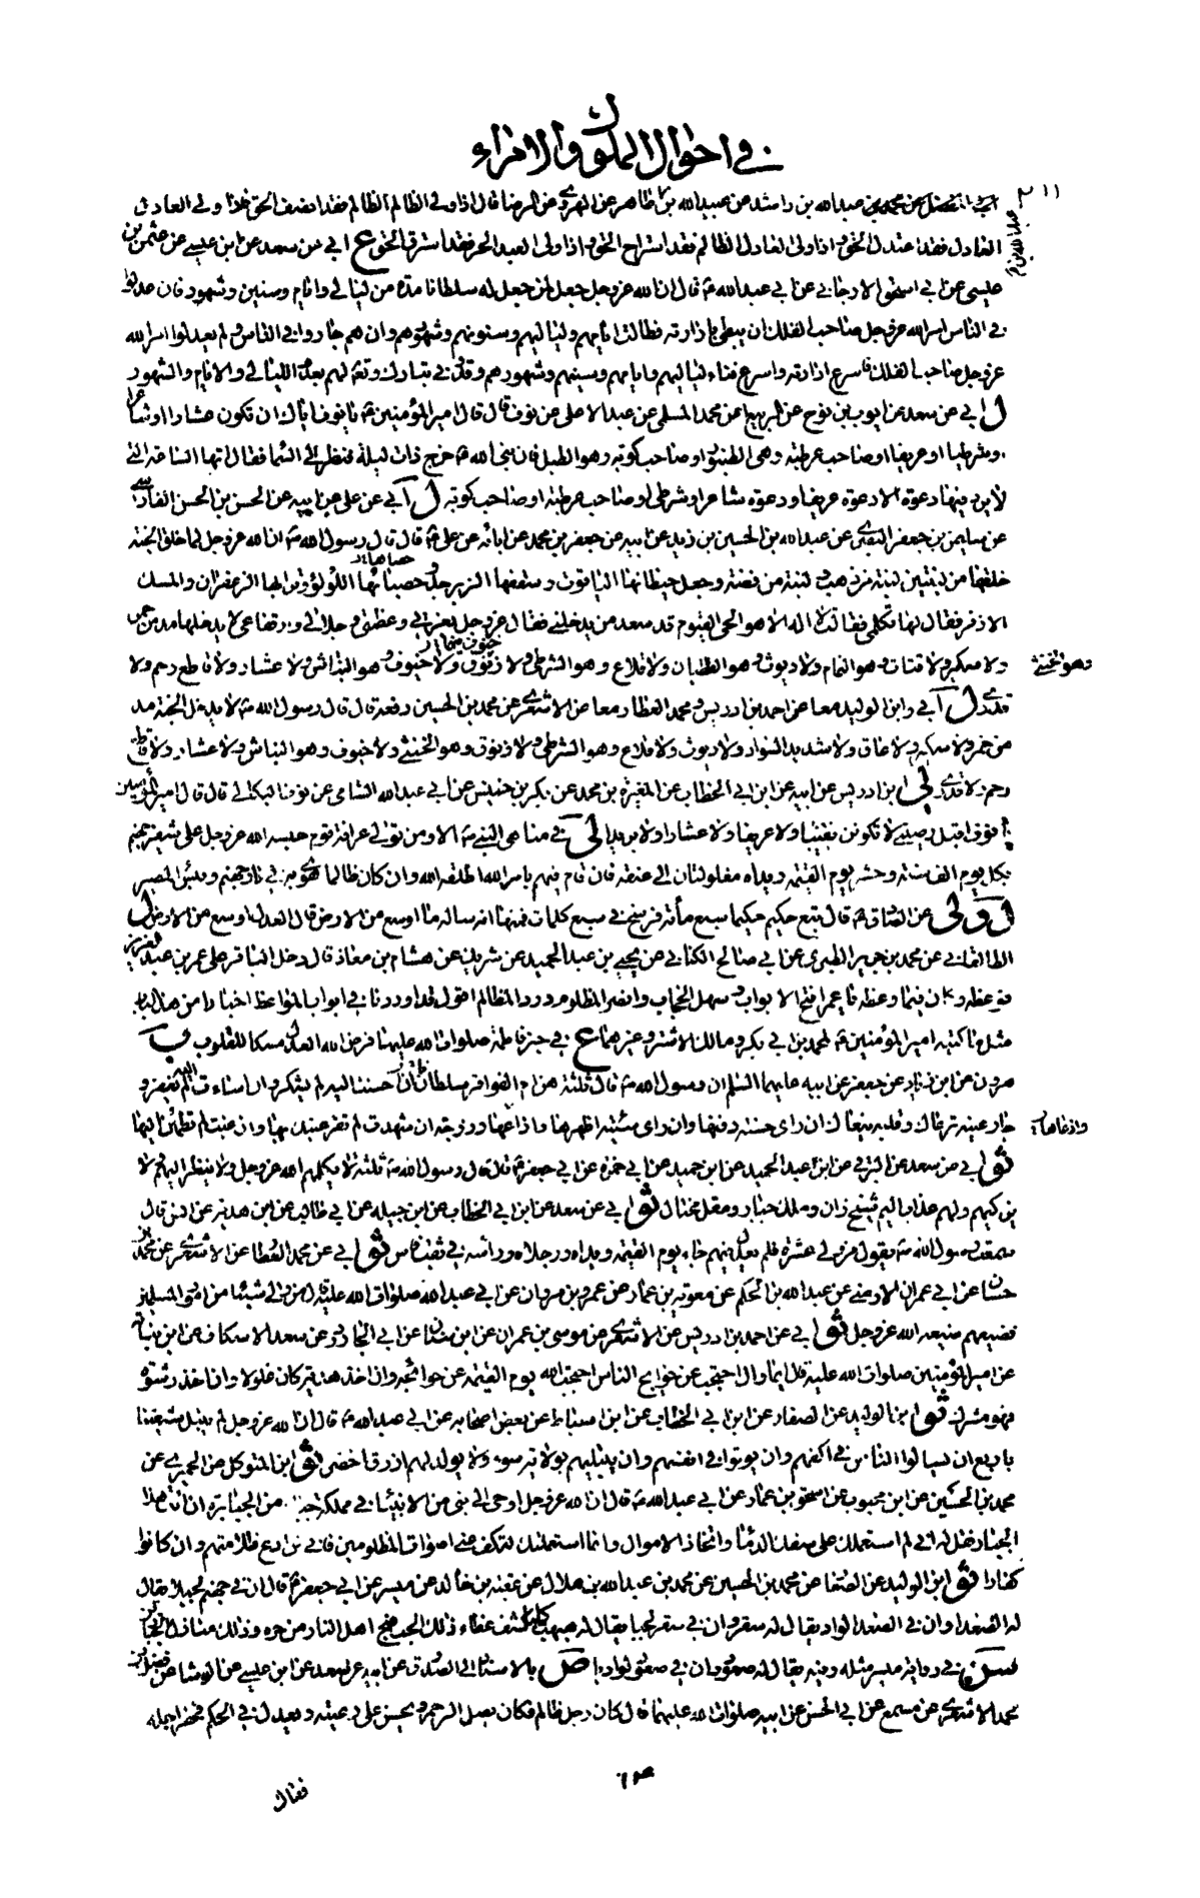 في احوال الملوك والامراء
٢١١
الفضل عن محمد بن عبدالله بن راشد عن عبيدالله بن طاهر عن الهروي عن الرضا قال اذا ولى الظالم الظالم فقد انصف الحق واذا ولى العادل
العادل فقد اعتدل الحق واذا ولى العادل الظالم فقد استراح الحق واذا ولى العبد الحر فقد استرق الحق ع ابي عن سعد عن ابن عيسى عن عثمن بن
عيسى عن ابي اسحق الارجاني عن ابي عبدالله ع قال ان الله عز وجل جعل لمن جعل له سلطانا مدة من ليالي وايام وسنين وشهور فان عدلوا
في الناس امر الله عز وجل صاحب الفلك ان يبطئ بادارته فطالت ايامهم ولياليهم وسنونهم وشهورهم وان هم جاروا في الناس ولم يعدلوا امر الله
عز وجل صاحب الفلك فاسرع ادارته واسرع فناء لياليهم وايامهم وسنيهم وشهورهم وقد وفى تبارك وتع لهم بعدد الليالي والايام والشهور
ل ابي عن سعد عن ايوب بن نوح عن الربيع عن محمد المسلي عن عبد الاعلى عن نوف قال قال امير المؤمنين ع يا نوف اياك ان تكون عشارا او شاعرا
او شرطيا او عريفا او صاحب عرطبة وهي الطنبور او صاحب كوبة وهو الطبل فان نبي الله ع خرج ذات ليلة فنظر الى السماء فقال انها الساعة التي
لا يرد فيها دعوة الا دعوة عريف او دعوة شاعر او شرطي او صاحب عرطبة او صاحب كوبة ل ابي عن علي عن ابيه عن الحسن بن الحسن الفارسي
عن سليمن بن جعفر البصري عن عبدالله بن الحسين بن زيد عن ابيه عن جعفر بن محمد عن ابائه عن علي ع قال قال رسول الله ص ان الله عز وجل لما خلق الجنة
خلقها من لبنتين لبنة من ذهب ولبنة من فضة وجعل حيطانها الياقوت وسقفها الزبرجد وحصباؤها اللؤلؤ وترابها الزعفران والمسك
الاذفر فقال لها تكلمي فقالت لا اله الا هو الحي القيوم قد سعد من يدخلني فقال عز وجل بعزتي وعظمتي وجلالي وارتفاعي لا يدخلها مدمن خمر
ولا سكير ولا قتات وهو النمام ولا ديوث وهو القلطبان ولا قلاع وهو الشرطي ولا زنوق ولا خيوف وهو النباش ولا عشار ولا قاطع رحم ولا
قدري ل ابي وابن الوليد معا عن احمد بن ادريس ومحمد العطار معا عن الاشعري عن محمد بن الحسين رفعه قال قال رسول الله ص لا يدخل الجنة مدمن
خمر ولا سكير ولا عاق ولا شديد السواد ولا ديوث ولا قلاع وهو الشرطي ولا زنوق وهو الخنثى ولا خيوف وهو النباش ولا عشار ولا قاطع
رحم ولا قدري لي ابن ادريس عن ابيه عن ابن ابي الخطاب عن المغيرة بن محمد عن بكر بن خنيس عن ابي عبدالله الشامي عن نوف البكالي قال قال امير المؤمنين
يا نوف اقبل وصيتي لا تكونن نقيبا ولا عريفا ولا عشارا ولا بريدا لي في مناهي النبي ص الا ومن تولى عرافة قوم حبسه الله عز وجل على شفير جهنم
بكل يوم الف سنة وحشر يوم القيمة ويداه مغلولتان الى عنقه فان قام فيهم بامر الله اطلقه الله وان كان ظالما هوى به في نار جهنم وبئس المصير
ل ولى عن الصادق ع قال تبع حكيم حكيما سبع مأة فرسخ في سبع كلمات فمنها انه ساله ما اوسع من الارض قال العدل اوسع من الارض ل
الطالقاني عن محمد بن جرير الطبري عن ابي صالح الكناني عن يحيى بن عبد الحميد عن شريك عن هشام بن معاذ قال دخل الباقر على عمر بن عبد العزيز
فوعظه وكان فيما وعظه يا عمر افتح الابواب وسهل الحجاب وانصر المظلوم ورد المظالم اقول قد اوردنا في ابواب المواعظ اخبارا من هذا الباب
مثل ما كتبه امير المؤمنين ع لمحمد بن ابي بكر ومالك الاشتر وغيرهما ع في خبر فاطمة صلوات الله عليها فرض الله العدل مسكا للقلوب ب
هرون عن ابن زياد عن جعفر عن ابيه عليهما السلم ان رسول الله ص قال ثلثة هن ام الفواقر سلطان ان احسنت اليه لم يشكر وان اسات اليه لم يغفر و
جار عينه ترعاك وقلبه ينعاك ان راى حسنة دفنها وان راى سيئة اظهرها واذاعها وزوجة ان شهدت لم تقر عينك بها وان غبت لم تطمئن اليها
ثو ابي عن سعد عن البرقي عن ابن عبد الحميد عن ابن حميد عن ابي حمزة عن ابي جعفر ع قال قال رسول الله ص ثلثة لا يكلمهم الله عز وجل ولا ينظر اليهم ولا
يزكيهم ولهم عذاب اليم شيخ زان وملك جبار ومقل مختال ثو ابي عن سعد عن ابن ابي الخطاب عن ابن جبلة عن ابي طالب عن ابن هدبة عن انس قال
سمعت رسول الله ص يقول من ولى عشرة فلم يعدل فيهم جاء يوم القيمة ويداه ورجلاه وراسه في ثقب فاس ثو ابي عن محمد العطار عن الاشعري عن محمد بن
حسان عن ابي عمران الارمني عن عبدالله بن الحكم عن معوية بن عمار عن عمرو بن مروان عن ابي عبدالله صلوات الله عليه قال من ولى شيئا من امور المسلمين
فضيعهم ضيعه الله عز وجل ثو ابي عن احمد بن ادريس عن الاشعري عن موسى بن عمران عن ابن سنان عن ابي الجارود عن سعد الاسكاف عن ابن نباته
عن امير المؤمنين صلوات الله عليه قال ايما وال احتجب عن حوايج الناس احتجب الله يوم القيمة عن حوائجه وان اخذ هدية كان غلولا وان اخذ رشوة
فهو مشرك ثو ابن الوليد عن الصفار عن ابن ابي الخطاب عن ابن اسباط عن بعض اصحابه عن ابي عبدالله ع قال ان الله عز وجل لم يبتل شيعتنا
باربع ان يسالوا الناس في اكفهم وان يؤتوا في انفسهم وان يبتليهم بولاية سوء ولا يولد لهم ازرق اخضر ثو ابن المتوكل عن الحميري عن
محمد بن الحسين عن ابن محبوب عن اسحق بن عمار عن ابي عبدالله ع قال ان الله عز وجل اوحى الى نبي من الانبياء في مملكة جبار من الجبابرة ان ائت هذا
الجبار فقل له اني لم استعملك على سفك الدماء واتخاذ الاموال وانما استعملتك لتكف عني اصوات المظلومين فاني لن ادع ظلامتهم وان كانوا
كفارا ثو ابن الوليد عن الصفار عن محمد بن الحسين عن محمد بن عبدالله بن هلال عن عقبة بن خالد عن ميسر عن ابي جعفر ع قال ان في جهنم لجبلا يقال
له الصعدا وان في الصعدا لواد يقال له سقر وان في سقر لجبا يقال له هبهب كلما كشف غطاء ذلك الجب ضج اهل النار من حره وذلك منازل الجبارين
سن في رواية ميسر مثله وفيه يقال له صعود وان في صعود لواديا ص بالاسناد الى الصدوق عن ابيه عن سعد عن ابن عيسى عن الوشا عن
محمد الاشعري عن مسمع عن ابي الحسن عن ابيه صلوات الله عليهما قال كان رجل ظالم فكان يصل الرحم ويحسن على رعيته ويعدل في الحكم فحضر اجله
فقال